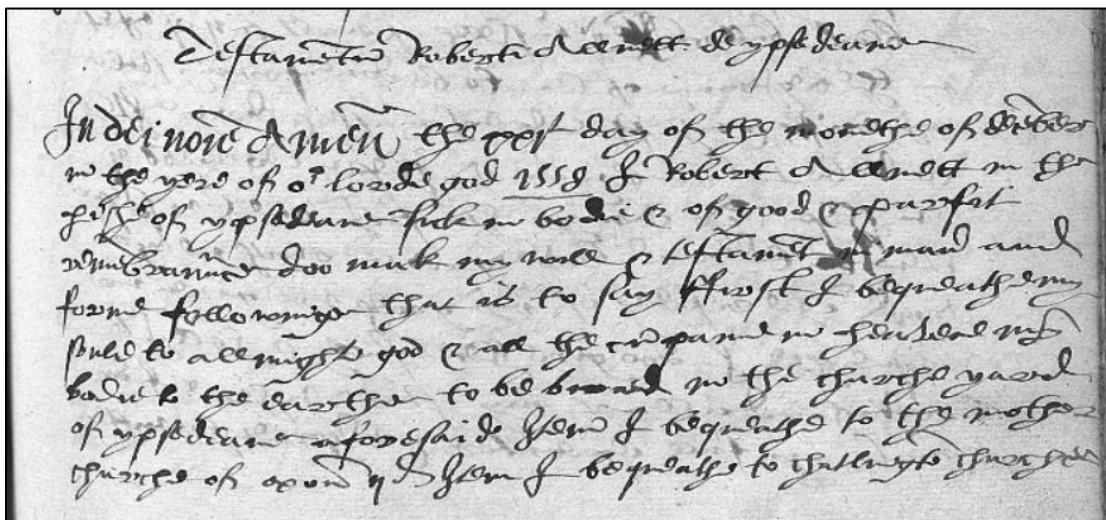 Testamentu Roberti Allnett de ypsedeane
In dei noie Amen the xxj day of the monethe of decēber
in the yere of or lorde god 1558 I Robert Allnett in the
of ypsedeane sick in bodie & of good & parfit
remēbraunce doo mak my will & testamēt in man and
forme followinge that is to say ffirst I bequeathe my
soule to allmighte god & all the cōpanie in heavene my
bodie to the earthe to be buried in the churche yared
of ypsedeane aforesaide Item I bequeathe to the mother
churche of oxon ijd Item I bequeathe to churche